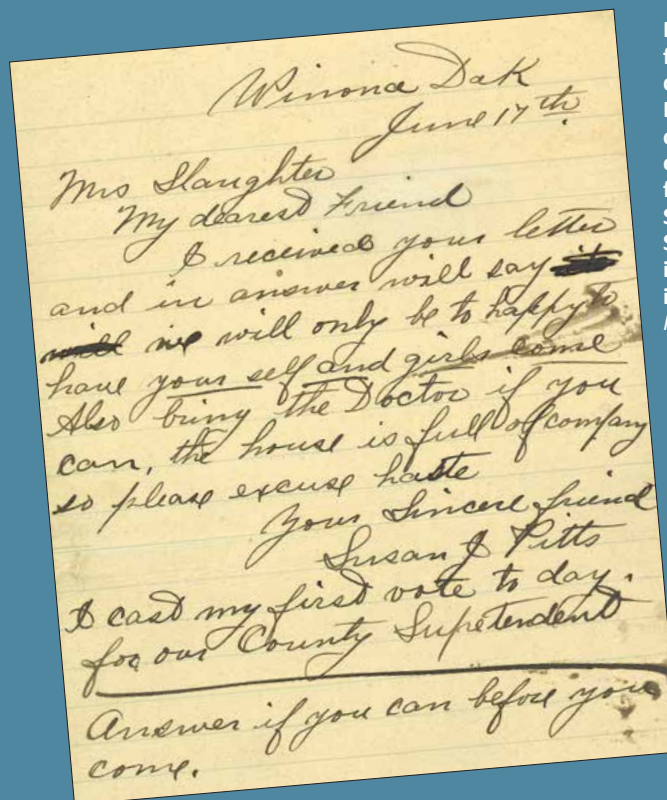 Winona Dak
June 17th
Mrs Slaughter
My dearest Friend
I received your letter
and in answer will say
we will only be to happy to
have your self and girls come
Also bring the Doctor if you
can, the house is full of company
so please excuse haste
Your Sincere friend
Susan J Pitts
I cast my first vote to day.
for our County Supetendent
Answer if you can before you
come.